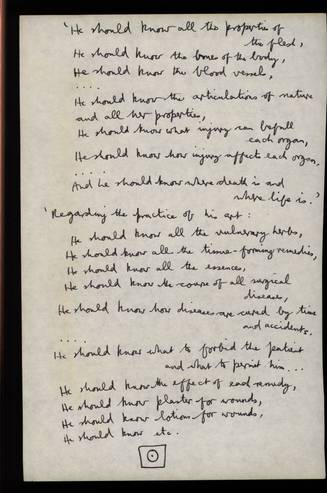 'He should know all the properties of
the flesh,
He should know the bones of the body,
He should know the blood vessels,
....
He should know the articulations of nature
and all her properties,
He should know what injury can befall
each organ,
He should know how injury affects each organ,
.....
And he should know where death is and
where life is.'
'Regarding the practice of his art:
He should know all the vulnerary herbs,
He should know all the tissue-forming remedies,
He should know all the essences,
He should know the course of all surgical
diseases,
He should know how diseases are cured by time
and accidents.
.....
He should know what to forbid the patient
and what to permit him...
He should know the effect of each remedy,
He should know plaster for wounds,
He should know lotions for wounds,
He should know etc.